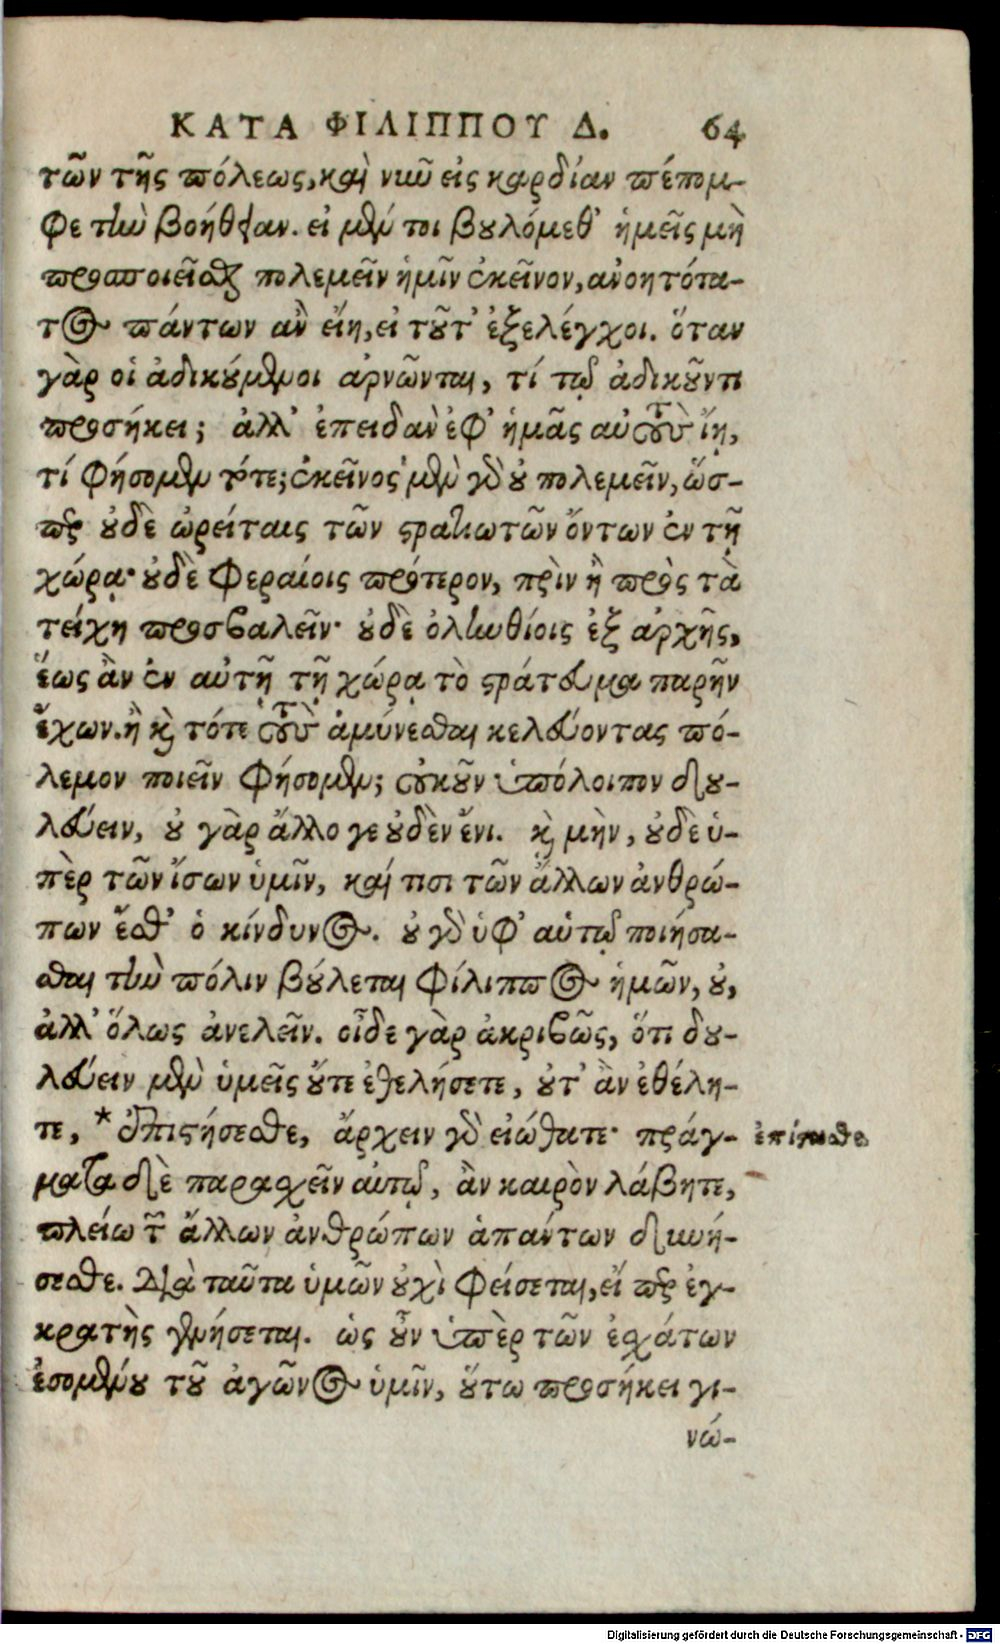 ΚΑΤΑ ΦΙΛΙΠΠΟΥ Δ. 64
τῶν τῆς πόλεως, καὶ νῦν εἰς καρδίαν πέπομ-
φε τὴν βοήθειαν. εἰ μέν τοι βουλόμεθ' ἡμεῖς μὴ
προσποιεῖσθαι πολεμεῖν ἡμῖν ἐκεῖνον, ἀνοητότα-
τος πάντων ἂν εἴη, εἰ τοῦτ' ἐξελέγχοι. ὅταν
γὰρ οἱ ἀδικούμενοι ἀρνῶνται, τί τῷ ἀδικοῦντι
προσήκει; ἀλλ' ἐπειδὰν ἐφ' ἡμᾶς αὐτοὺς ἴῃ,
τί φήσομεν τότε; ἐκεῖνος μὲν γὰρ οὐ πολεμεῖν, ὥσ-
περ οὐδὲ ὠρείταις τῶν στρατιωτῶν ὄντων ἐν τῇ
χώρᾳ· οὐδὲ φεραίοις πρότερον, πρὶν ἢ πρὸς τὰ
τείχη προσβαλεῖν· οὐδὲ ὀλυνθίοις ἐξ ἀρχῆς,
ἕως ἂν ἐν αὐτῇ τῇ χώρᾳ τὸ στράτευμα παρῆν
ἔχων. ἢ καὶ τότε τοὺς ἀμύνεσθαι κελεύοντας πό-
λεμον ποιεῖν φήσομεν; οὐκοῦν ὑπόλοιπον δου-
λεύειν, οὐ γὰρ ἄλλο γε οὐδὲν ἔνι. καὶ μὴν, οὐδὲ ὑ-
πὲρ τῶν ἴσων ὑμῖν, καί τισι τῶν ἄλλων ἀνθρώ-
πων ἔσθ' ὁ κίνδυνος. οὐ γὰρ ὑφ' αὑτῷ ποιήσα-
σθαι τὴν πόλιν βούλεται Φίλιππος ἡμῶν, οὐ,
ἀλλ' ὅλως ἀνελεῖν. οἶδε γὰρ ἀκριβῶς, ὅτι δου-
λεύειν μὲν ὑμεῖς οὔτε ἐθελήσετε, οὔτ' ἂν ἐθέλη-
τε, * ἐπιστήσεσθε, ἄρχειν γὰρ εἰώθατε· πράγ-
ματα δὲ παρασχεῖν αὐτῷ, ἂν καιρὸν λάβητε,
πλείω τῶν ἄλλων ἀνθρώπων ἁπάντων δυνή-
σεσθε. Διὰ ταῦτα ὑμῶν οὐχὶ φείσεται, εἴ περ ἐγ-
κρατὴς γενήσεται. ὡς οὖν ὑπὲρ τῶν ἐσχάτων
ἐσομένου τοῦ ἀγῶνος ὑμῖν, οὕτω προσήκει γι-
νώ-
Digitalisierung gefördert durch die Deutsche Forschungsgemeinschaft - DFG